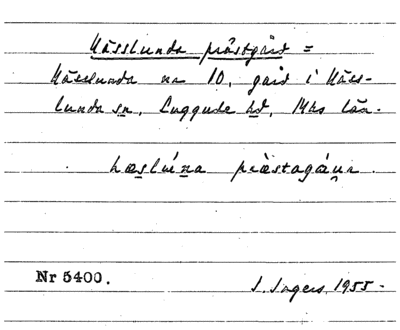 Kässlunda prästgård =
Kässlunda nr 10, gård i Käss-
lunda sn, Luggude hd, Mhs län.
kæslúna præstagáųn.
Nr 5400.
I. Ingers. 1955.